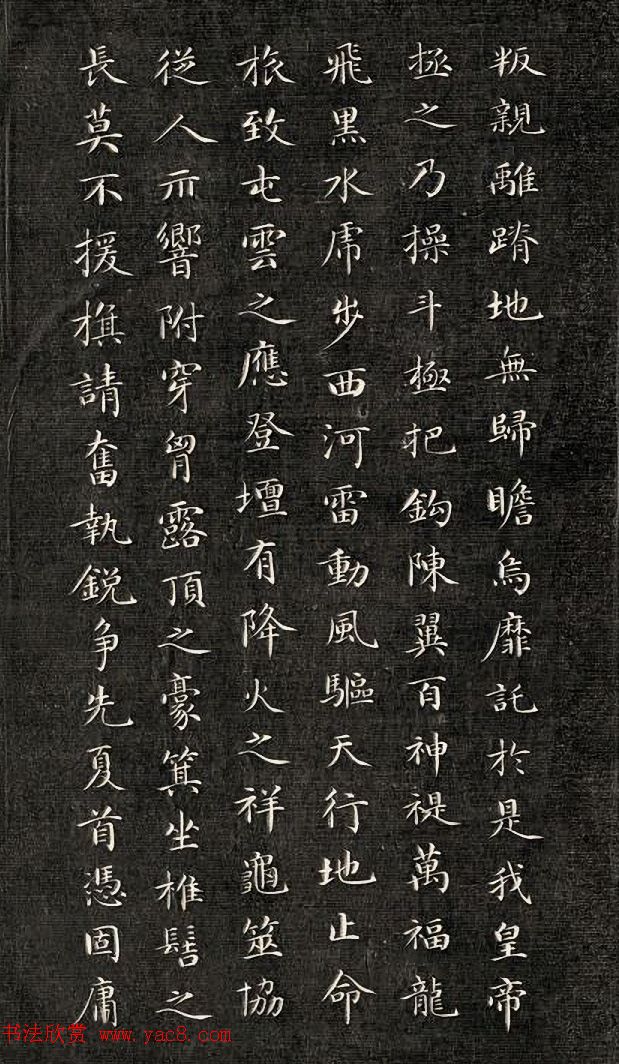 叛親離蹐地無歸瞻烏靡託於是我皇帝
拯之乃操斗極把鈎陳翼百神禔萬福龍
飛黑水虎步西河雷動風驅天行地止命
旅致屯雲之應登壇有降火之祥龜筮協
從人示響附穿胷露頂之豪箕坐椎髻之
長莫不援旗請奮執銳争先夏首憑固庸
书法欣赏 www.yac8.com